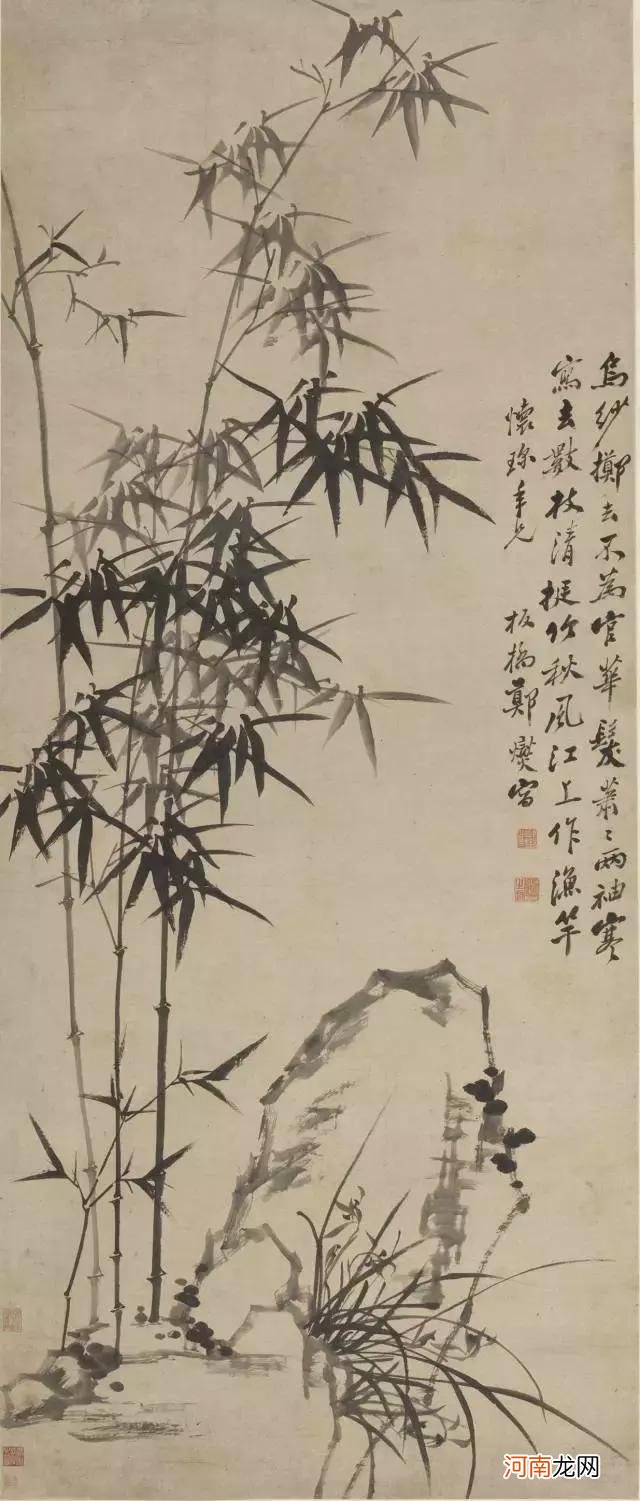 烏紗擲去不為官華髮蕭〻兩袖寒
寫去數枝清挺竹秋風江上作漁竿
懷琛年兄 板橋鄭燮寫
河南龙网